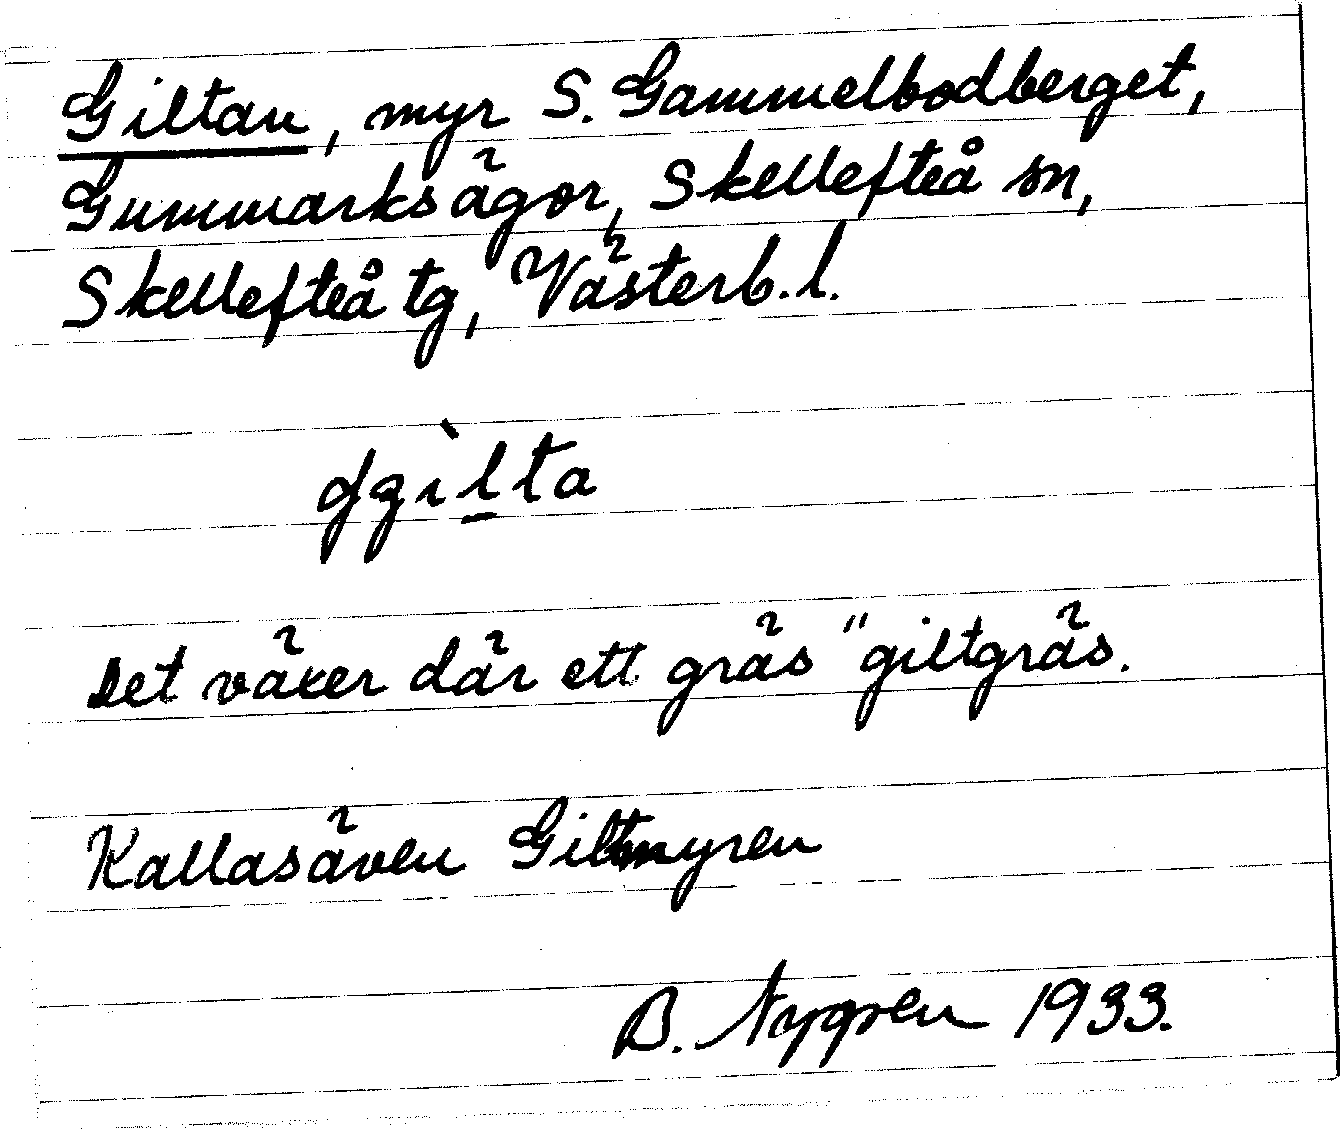 Giltan, myr S. Gammelbodberget,
Gummarksägor, Skellefteå sn,
Skellefteå tg, Västerb. l.
Det växer där ett gräs "giltgräs.
Kallas även Giltmyren
B. Nygren 1933.